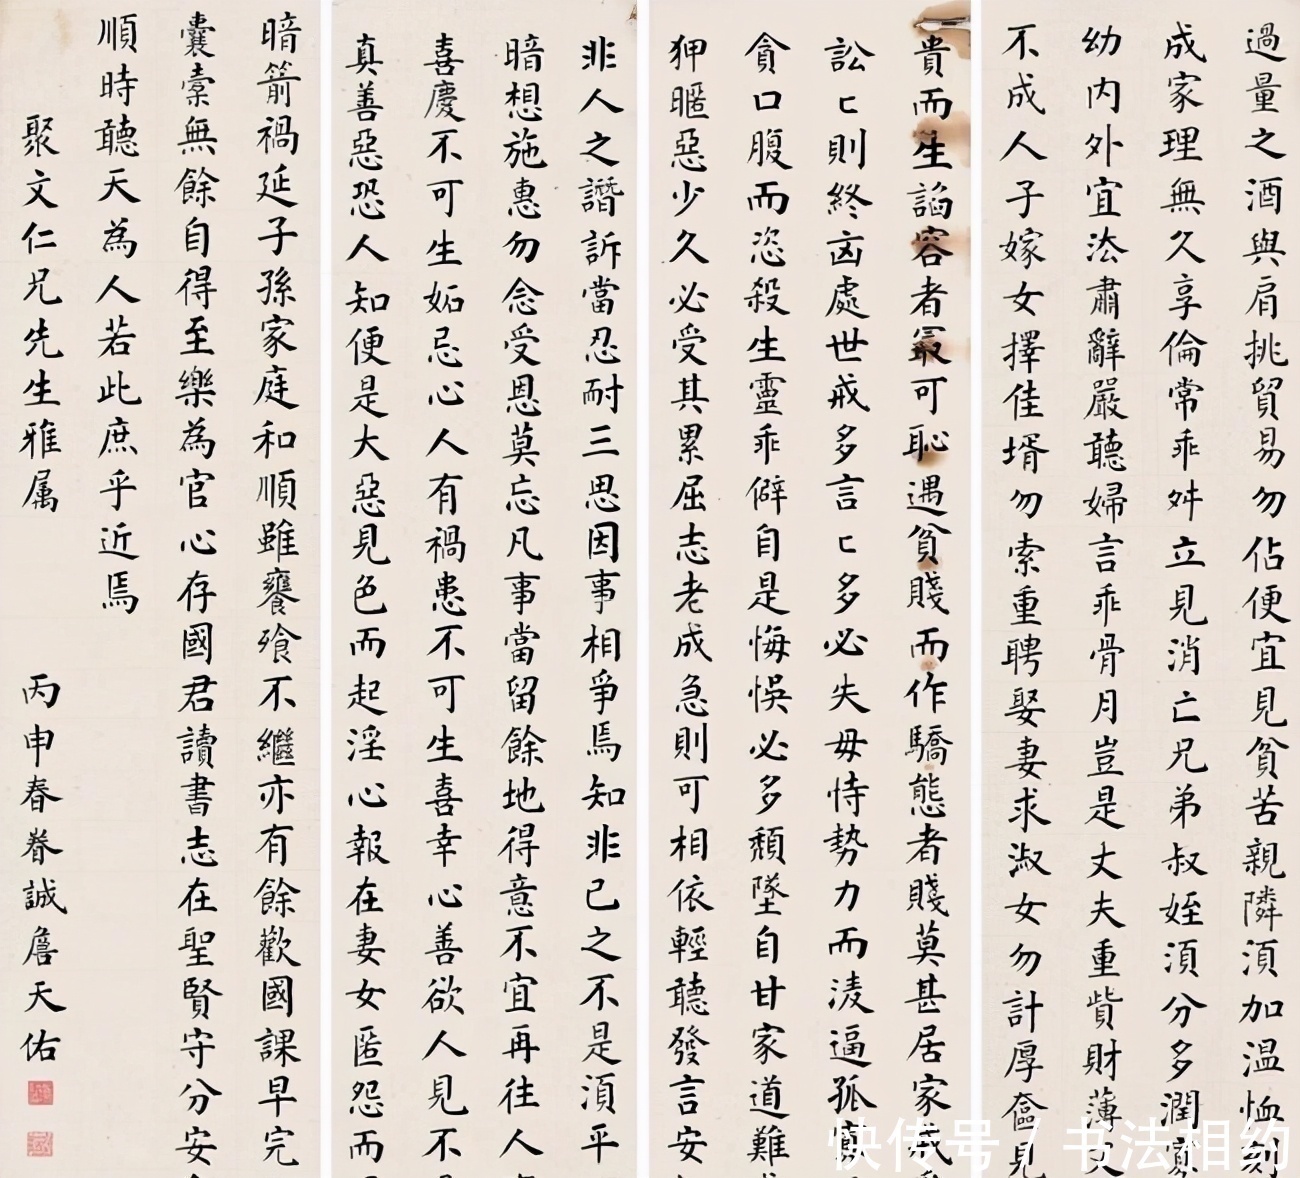 過量之酒與肩挑貿易勿佔便宜見貧苦親隣須加温恤刻
成家理無久享倫常乖舛立見消亡兄弟叔姪須分多潤寡
幼内外宜法肅辭嚴聽婦言乖骨月豈是丈夫重貲財薄父
不成人子嫁女擇佳壻勿索重聘娶妻求淑女勿計厚奩見
貴而生諂容者最可恥遇貧賤而作驕態者賤莫甚居家戒
訟匕則終凶處世戒多言匕多必失毋恃勢力而淩逼孤寡
貪口腹而恣殺生靈乖僻自是悔悞必多頽墜自甘家道難
狎暱惡少久必受其累屈志老成急則可相依輕聽發言安
非人之譖訴當忍耐三思因事相爭焉知非己之不是須平
暗想施惠勿念受恩莫忘凡事當留餘地得意不宜再往人
喜慶不可生妬忌心人有禍患不可生喜幸心善欲人見不
真善惡恐人知便是大惡見色而起淫心報在妻女匿怨而
暗箭禍延子孫家庭和順雖饔飧不繼亦有餘歡國課早完
囊橐無餘自得至樂為官心存國君讀書志在聖賢守分安
順時聽天為人若此庶乎近焉
聚文仁兄先生雅属
丙申春眷誠詹天佑
快传号 / 书法相约